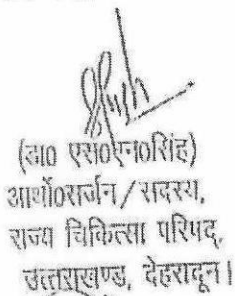 (डा० एस०एन०सिंह)
आर्थो०सर्जन/सदस्य,
राज्य चिकित्सा परिषद्,
उत्तराखण्ड, देहरादून।